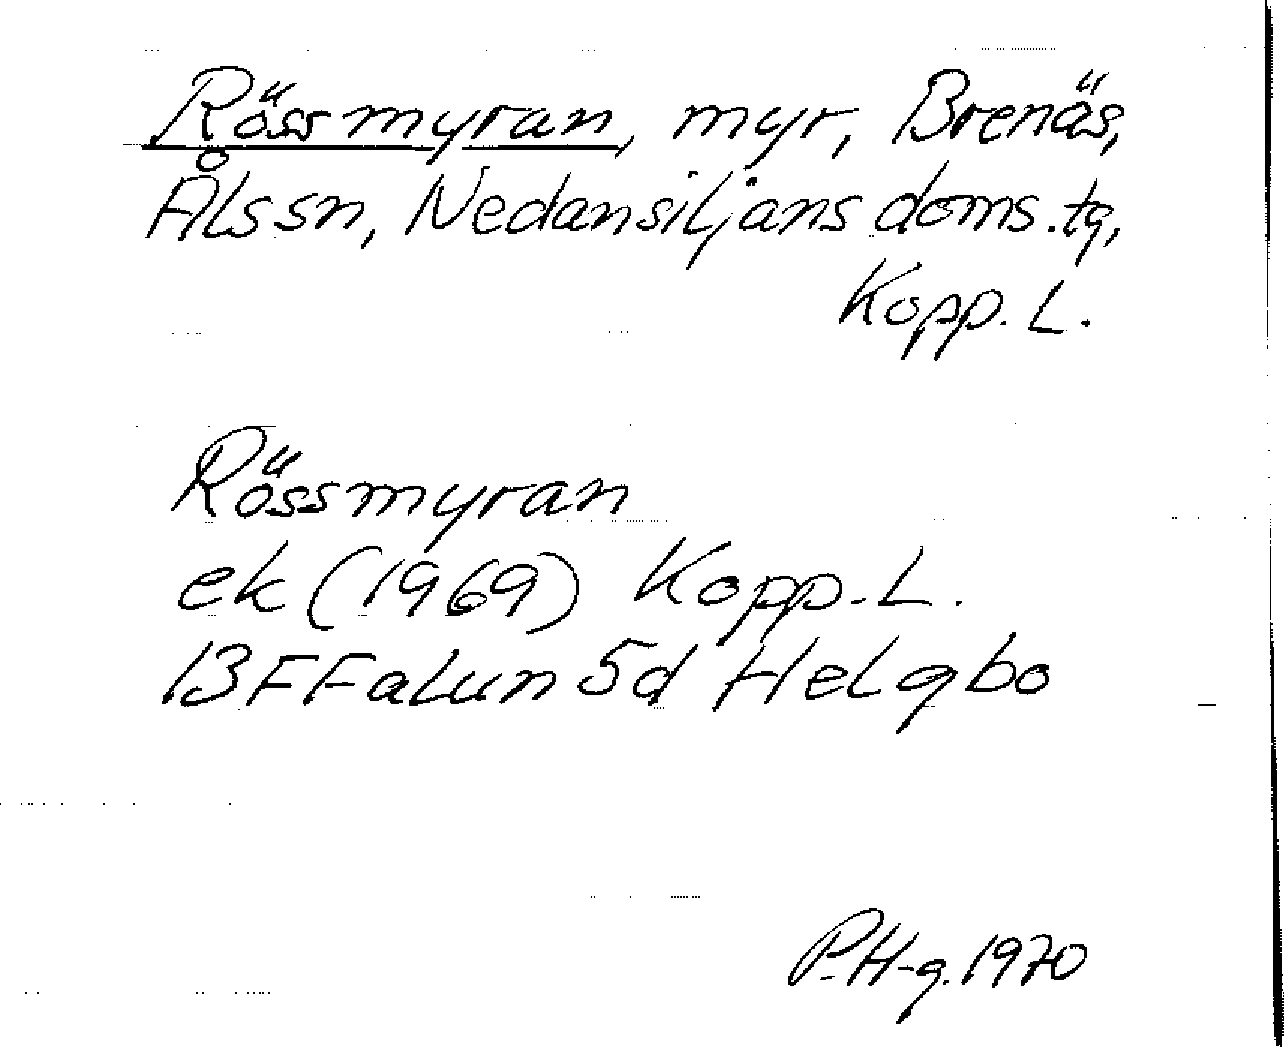 Rössmyran, myr, Brenäs,
Åls sn, Nedansiljans doms.tg,
Kopp. L.
Rössmyran
ek (1969) Kopp. L.
13F Falun 5d Helgbo
P.H-g. 1970